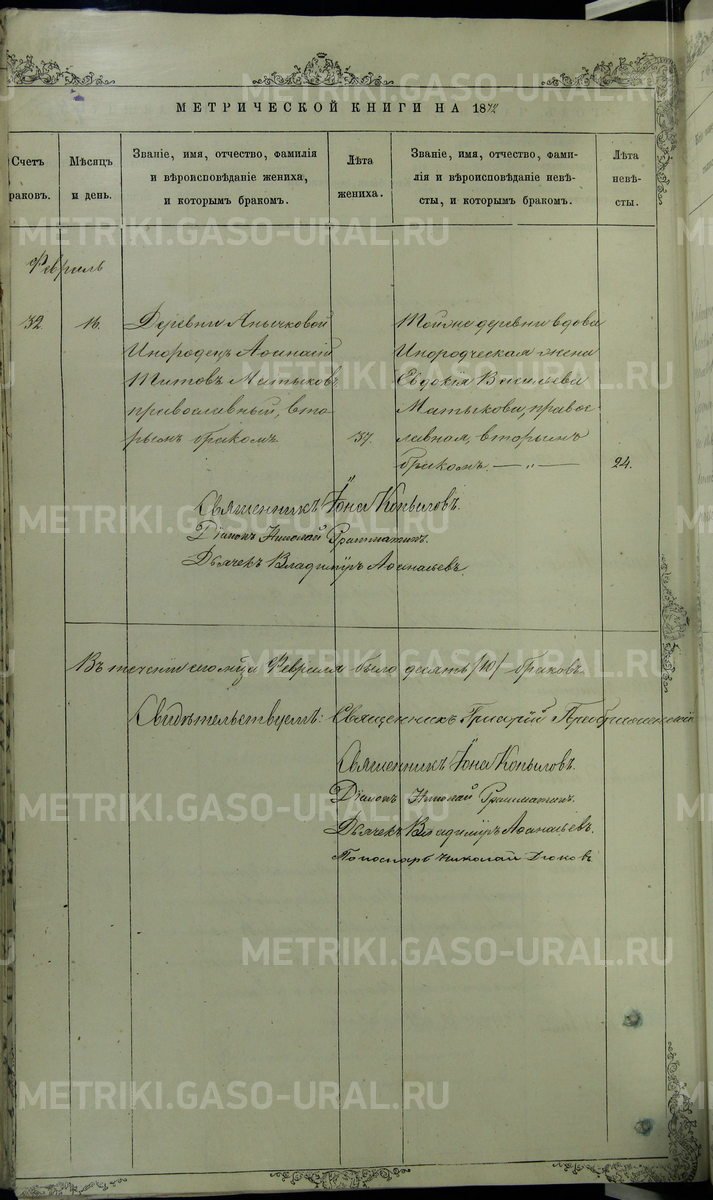 МЕТРИЧЕСКОЙ КНИГИ НА 1872
Счетъ
раковъ.
Мѣсяцъ
и день.
Званіе, имя, отчество, фамилія
и вѣроисповѣданіе жениха,
и которымъ бракомъ.
Лѣта
жениха.
Званіе, имя, отчество, фами-
лія и вѣроисповѣданіе невѣ-
сты, и которымъ бракомъ.
Лѣта
невѣ-
сты.
Февраль
32.
16.
Деревни Анычковой
Инородецъ Аѳанасій
Титовъ Матыковъ
православный, вто-
рымъ бракомъ
37.
Тойже деревни вдова
Инородческая жена
Евдокія Васильева
Матыкова, правос
лавная, вторымъ
бракомъ. — „ —
24.
Священникъ Іона Копыловъ.
Діаконъ Николай Грамматинъ.
Дьячекъ Владиміръ Аѳанасьевъ
Въ теченіи сего м-ца Февраля было десять /10/ браковъ
Свидѣтельствуемъ: Священникъ Григорій
Священникъ Іона Копыловъ.
Діаконъ Николай Грамматинъ.
Дьячекъ Владиміръ Аѳанасьевъ.
Пономарь Николай
METRIKI.GASO-URAL.RU